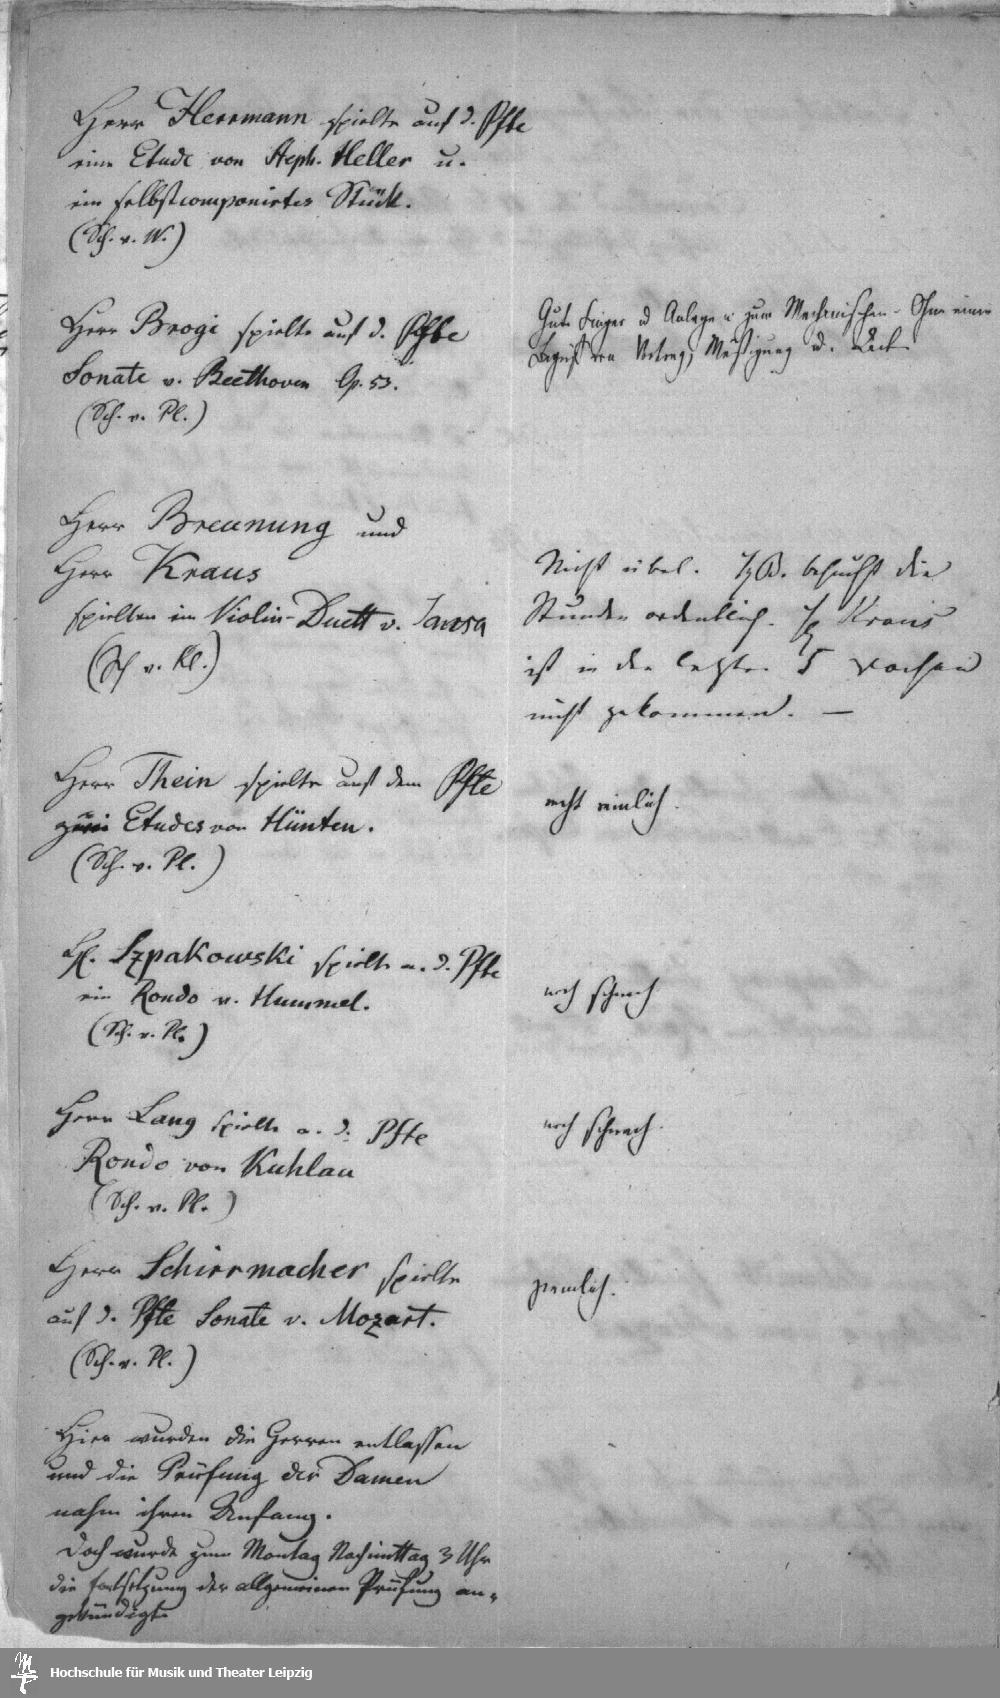 Herr Herrmann spielte auf d. Pfte
eine Etude von Steph. Heller u.
ein selbstcomponirtes Stück.
(Sch. v. W.)
Herr Brogi spielte auf d. Pfte
Sonate v. Beethoven Op. 53.
(Sch. v. Pl.)
Gute Finger u Anlage zum Mechanischen - Ohne einen
Begriff von Vortrag, Mäßigung u.
Herr Breunung und
Herr Kraus
spielten ein Violin-Duett v. Jansa
(Sch v. Kl.)
Nicht übel. H. B. besucht die
Stunden ordentlich. H Kraus
ist in den letzten 5 Wochen
nicht gekommen. —
Herr Thein spielte auf dem Pfte
zwei Etudes von Hünten.
(Sch. v. Pl.)
recht reinlich.
H. Szpakowski spielte a. d. Pfte
ein Rondo v. Hummel.
(Sch. v. Pl.)
noch schwach
Herr Lang spielte a. d. Pfte
Rondo von Kuhlau
(Sch. v. Pl.)
noch schwach.
Herr Schirrmacher spielte
auf d. Pfte Sonate v. Mozart.
(Sch. v. Pl.)
ziemlich.
Hier wurden die Herren entlassen
und die Prüfung der Damen
nahm ihren Anfang.
Doch wurde zum Montag Nachmittag 3 Uhr
die Fortsetzung der allgemeinen Prüfung an-
gekündigt
Hochschule für Musik und Theater Leipzig